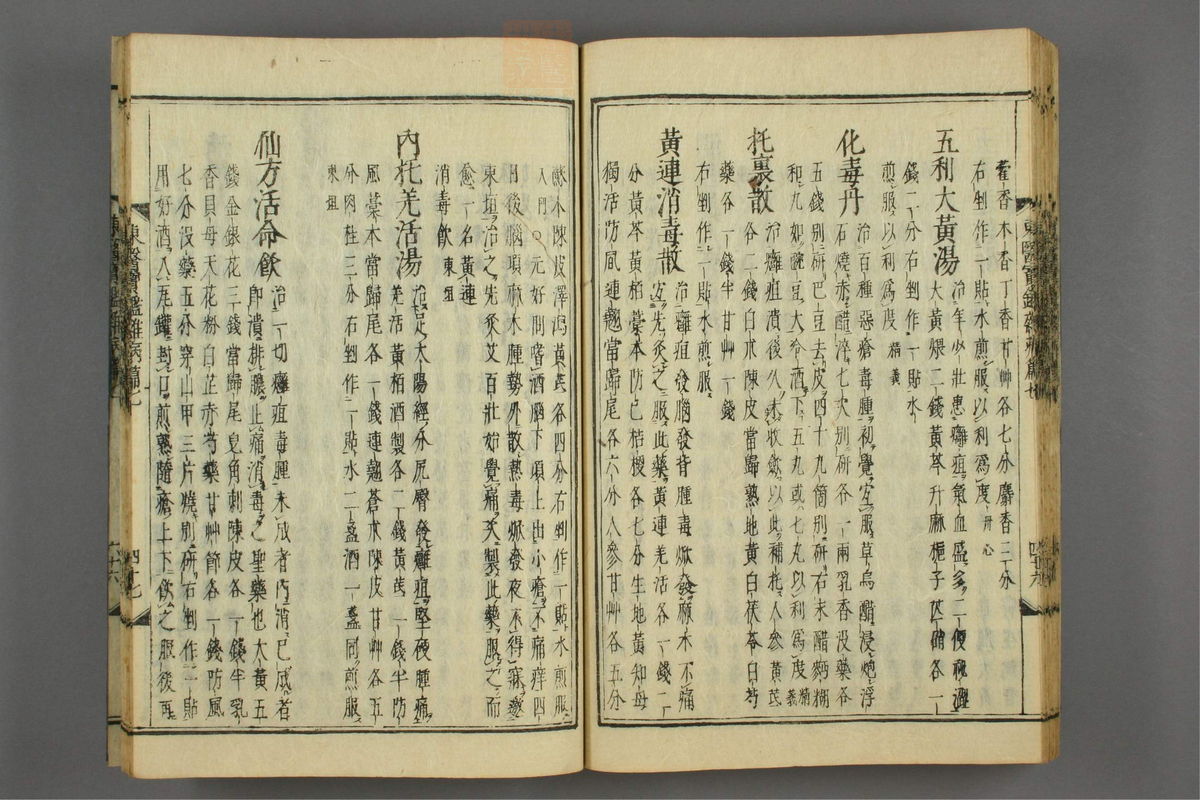 藿香木香丁香甘艸各七分麝香三分
右剉作一貼水煎服以利爲度 丹心
五利大黃湯 治年少壯患癰疽氣血盛多二便秘澁
大黃煨二錢黃芩升麻梔子芒硝各一
錢二分右剉作一貼水
煎服以利爲度 精義
化毒丹 治百種惡瘡毒腫初覺宜服草烏醋浸炮浮
石燒赤醋淬七次別研各一兩乳香没藥各
五錢別研巴豆去皮四十九箇別研右末醋麪糊
和丸如豌豆大冷酒下五丸或七丸以利爲度 精義
托裏散 治癰疽潰後久未收歛以此補托人參黃芪
各二錢白朮陳皮當歸熟地黃白茯苓白芍
藥各一錢半甘艸一錢
右剉作一貼水煎服
黃連消毒散 治癰疽發腦發背腫毒焮發麻木不痛
宜先灸之服此藥黃連羌活各一錢二
分黃芩黃柏藁本防己桔梗各七分生地黃知母
獨活防風連翹當歸尾各六分人參甘艸各五分
蘇木陳皮澤瀉黃芪各四分右剉作一貼水煎服
入門○元好問嗜酒腦下項上出小瘡不痛痒四
日後腦項麻木腫勢外散熱毒焮發夜不得寐
東垣治之先灸艾百壯始覺痛次製此藥服之而
愈一名黃連
消毒飮 東垣
內托羌活湯 治足太陽經分尻臀發癰疽堅硬腫痛
羌活黃柏酒製各二錢黃芪一錢半防
風藁本當歸尾各一錢連翹蒼朮陳皮甘艸各五
分肉桂三分右剉作一貼水二盞酒一盞同煎服
東垣
仙方活命飮 治一切癰疽毒腫未成者內消已成者
即潰排膿止痛消毒之聖藥也大黃五
錢金銀花三錢當歸尾皂角刺陳皮各一錢半乳
香貝母天花粉白芷赤芍藥甘艸節各一錢防風
七分没藥五分穿山甲三片燒別研右剉作一貼
用好酒入瓦罐封口煎熟隨瘡上下飮之服後再
東醫寶鑑雜病篇七
東醫寶鑑雜病篇七